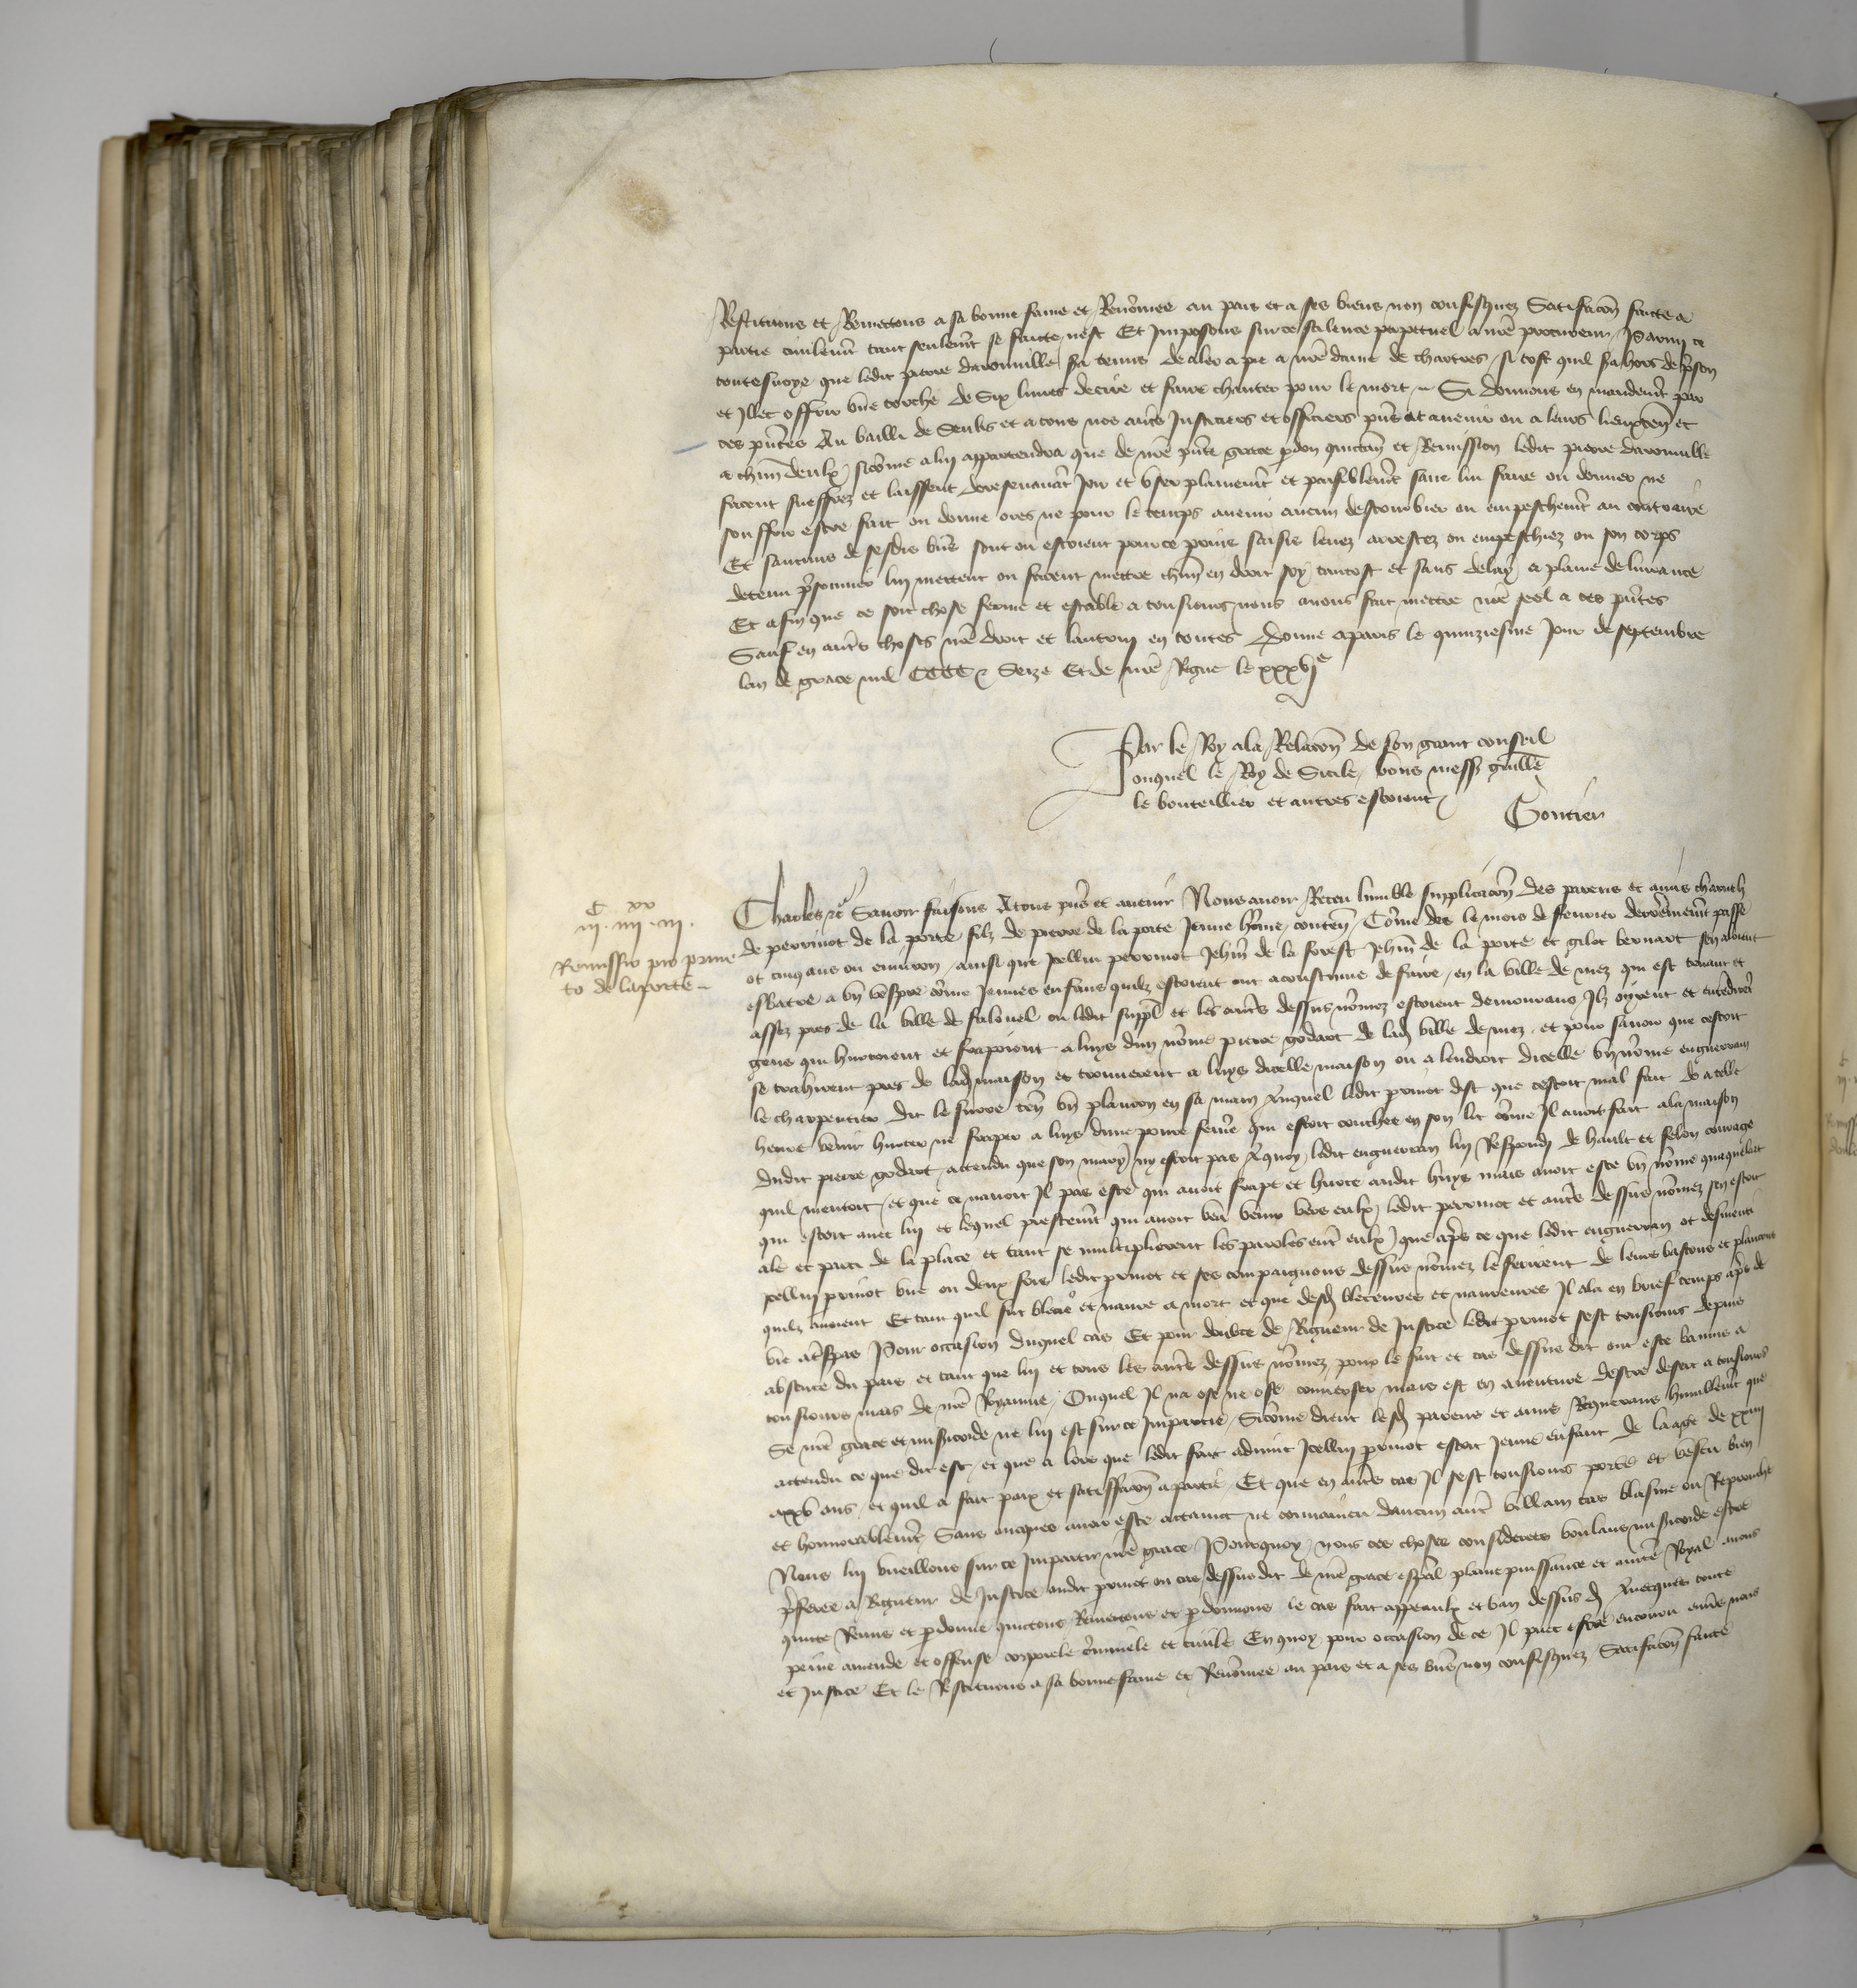 Restituons et Remettons a sa bonne fame et Renõmee au pais et a ses biens non confisquez Satisfacõn faicte a
partie civilemt tant seulemt se faicte nest Et Imposons sur ce scilence perpetuel a nre procureur / Parmi ce
toutesvoye que ledit pierre darouville sera tenus de aler a pie a nre dame de chartres / si tost quil sera hors de prison
et Illec offrir une torche de Six livres de cire et faire chanter pour le mort Si donnons en mandemt par
ces pntes Au bailli de Senlis et a tous nos autres Justiciers et officiers pns et avenir ou a leurs lieuxten et
a chun deulx / sicõme a lui appartendra que de nre pnte grace pdon quictan et Remission ledit pierre darouville
facent sueffrez et laissent doresenavant Joir et user plainemt et paisiblemt sans lui faire ou donner ne
souffrir estre fait ou donne ores ne pour le temps avenir aucun destourbier ou empeschemt au contraire
Et saucuns de sesdis biens sont ou estoient pour ce prins saisis levez arrestez ou empeschiez ou son corps
detenu prisonnier lui mettent ou facent mettre chun en droit soy tantost et sans delay a plaine delivrance
Et afin que ce soit chose ferme et estable a tousiours nous avons fait mettre nre seel a ces pntes
Sauf en autres choses nre droit et lautruy en toutes Donne a paris le quinziesme Jour de septembre
lan de grace mil CCCC et Seze Et de nre Regne le xxxvj e
Par le Roy a la Relacõn de son grant conseil
ouquel le Roy de Sicile vous mess guille
le bouteillier et autres estoient
Gontier
C xx
iij . iiij . iij .
Remissio pro perrine
to de la porte
Charles etc Savoir faisons A tous pns et avenir Nous avoir Receu lumble supplicacõn des parens et amis charnelz
de perrinot de la porte filz de pierre de la porte Jeune hõme contenant Cõme des le mois de fevrier derrenieremt passe
ot cinq ans ou environ / ainsi que Icellui perrinot Jehan de la forest Jehan de la porte et gilot bernart sen aloient
esbatre a un vespre cõme Jeunes enfans quilz estoient ont acoustume de faire / en la ville de mez qui est tenant et
assez pres de la ville de falouel ou ledit suppl et les autres dessus nõmez estoient demourans Ilz oyrent et entendirent
gens qui hurtoient et frapoient a luys dun nõme pierre godart de lad ville de mez . et pour savoir que cestoit
se trahirent pres de lad maison et trouverent a luys dicelle maison ou a lendroit dicelle un nõme enguerran
le charpentier dit le sueur ten un plancon en sa main Auquel ledit perrinot dist que cestoit mal fait de a celle
heure venir hurter ne fraper a luys dune povre feme qui estoit couchee en son lit cõme Il avoit fait a la maison
dudit pierre godart attendu que son mary ny estoit pas Aquoy ledit enguerran lui Respondi de hault et felon courage
quil mentoit / et que ce navoit Il pas este qui avoit frape et hurte audit huys mais avoit este un nõme
qui estoit avec lui et lequel prestemt qui avoit veu venir vers eulx / ledit perrinot et autres dessus nõmez sen estoit
ale et parti de la place et tant se multiplierent les paroles entre eulx / que apres ce que ledit enguerran ot desmenti
Icellui perrinot une ou deux fois ledit perrinot et ses compaignons dessus nõmez le ferirent de leurs bastons et plancons
quilz avoient Et tant quil fut blecie et navre a mort et que desd bleceures et navreures Il ala en brief temps apres de
vie a trespas Pour occasion duquel cas Et pour doubte de Rigueur de Justice ledit perrinot sest tousiours depuis
absente du pais et tant que lui et tous les autres dessus nõmez pour le fait et cas dessus dit ont este bannis a
tousiours mais de nre Royaume Ouquel Il na ose ne ose converser mais est en aventure destre desert a tousiours
Se nre grace et misericorde ne lui est sur ce Impartie / Sicõme dient lesd parens et amis Requerans humblemt que
attendu ce que dit est / et que a lore que ledit fait advint Icellui perrinot estoit Jeune enfant de laage de xxiiij
a xxv ans / et quil a fait paix et satisfacõn a partie Et que en autres cas Il sest tousiours porte et vescu bien
et honnorablemt Sans oncques avoir este attaint ne convaincu daucun autre villain cas blasme ou Reprouche
Nous lui vueillons sur ce Impartir nre grace Pourquoy / nous ces choses considerees voulans misericorde estre
preferee a Rigueur de Justice audit perrinot ou cas dessus dit de nre grace espal plaine puissance et aucte Royal avons
quicte Remis et pdonne quictons Remettons et pdonnons le cas fait appeaulx et ban dessus d Avecques toute
peine amende et offense corporele criminele et civile En quoy pour occasion de ce Il puet estre encouru envers nous
et Justice Et le Restituons a sa bonne fame et Renõmee au pais et a ses biens non confisquez Satisfacõn faicte